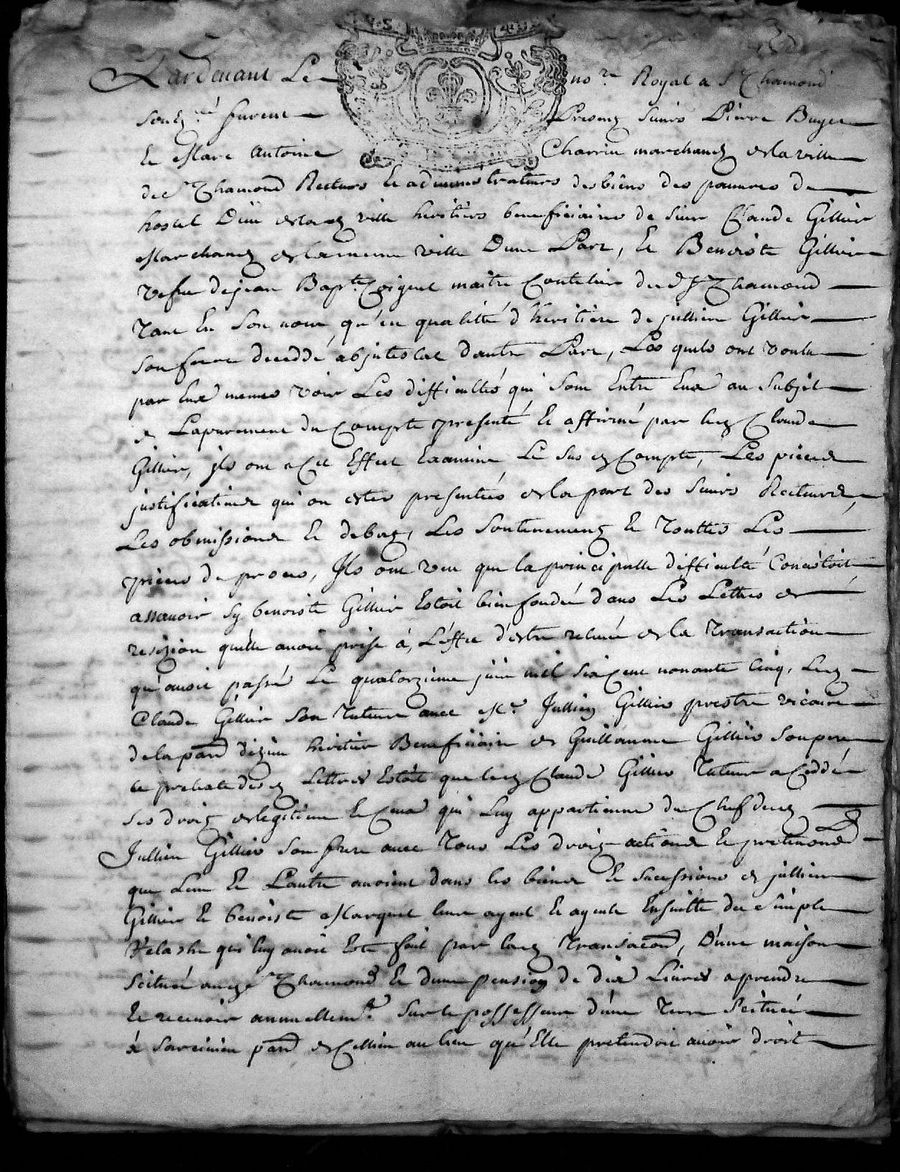 Pardevant Le no.re Royal a St Chamond
soubz.né furent Presens Sieurs Pierre Buyet
Et Marc Antoine Charrin marchands de la ville
de St Chamond Recteurs Et administrateurs des biens des pauvres de
hostel Dieu de lad ville heritiers beneficiaire de sieur Claude Gillier
Marchand de la mesme ville Dune Part, Et Benoiste Gillier
vefve de jean Bap.te maitre Coutelier dud St Chamond
Tant En Son nom, qu'en qualitté d'heritière de jullien Gillier
son frere decedde abjntestat dautre Part, Les quels ont voulu
par Eux memes voir Les difficultés qui sont Entre Eux au subjet
de Lapurement du Compte presenté Et affirmé par led Claude
Gillier, jls ont a Cet Effect Examiné Le susd Compte, Les pieces
justificatives qui on estes presentées de la part des Sieurs Recteurs
Les obmissions Et debatz, Les soutenements Et Touttes Les
pieces du proces, Jls ont veu que la principalle difficulté Concistoit
assavoir sy benoiste Gillier Estoit bien fondée dans Les Lettres de
rescizion quelle avoit prise à L'effet d'estre relevée de la Transaction
qu'avoit passé Le quatorzieme juin mil six Cent nonante Cinq, Led
Claude Gillier son Tuteur avec M.r Jullien Gillier prestre vicaire
de la par dizieu heritier Beneficiaire de Guillaume Gillier son pere
Le desd Lettres Estoit que led Claude Gillier Tuteur a Ceddé
ses droitz de legitime Et Ceux qui Luy appartienne du Chef dud
Jullien Gillier son frere avec Tous Les droitz actions Et pretentions
que Lun Et Lautre avoient dans les biens Et sucessions de jullien
Gillier Et benoiste Marquet leurs ayeul Et ayeule Ensuitte du simple
Relache qui luy avoit Esté fait par lad Transaction, D'une maison
scituée aud St Chamond Et dune pension de dix Livres a prendre
Et recevoir annuellem.t sur le possesseur d'une Terre Scituée
à par de Cellieu au lieu qu'Elle pretendoit avoir droit